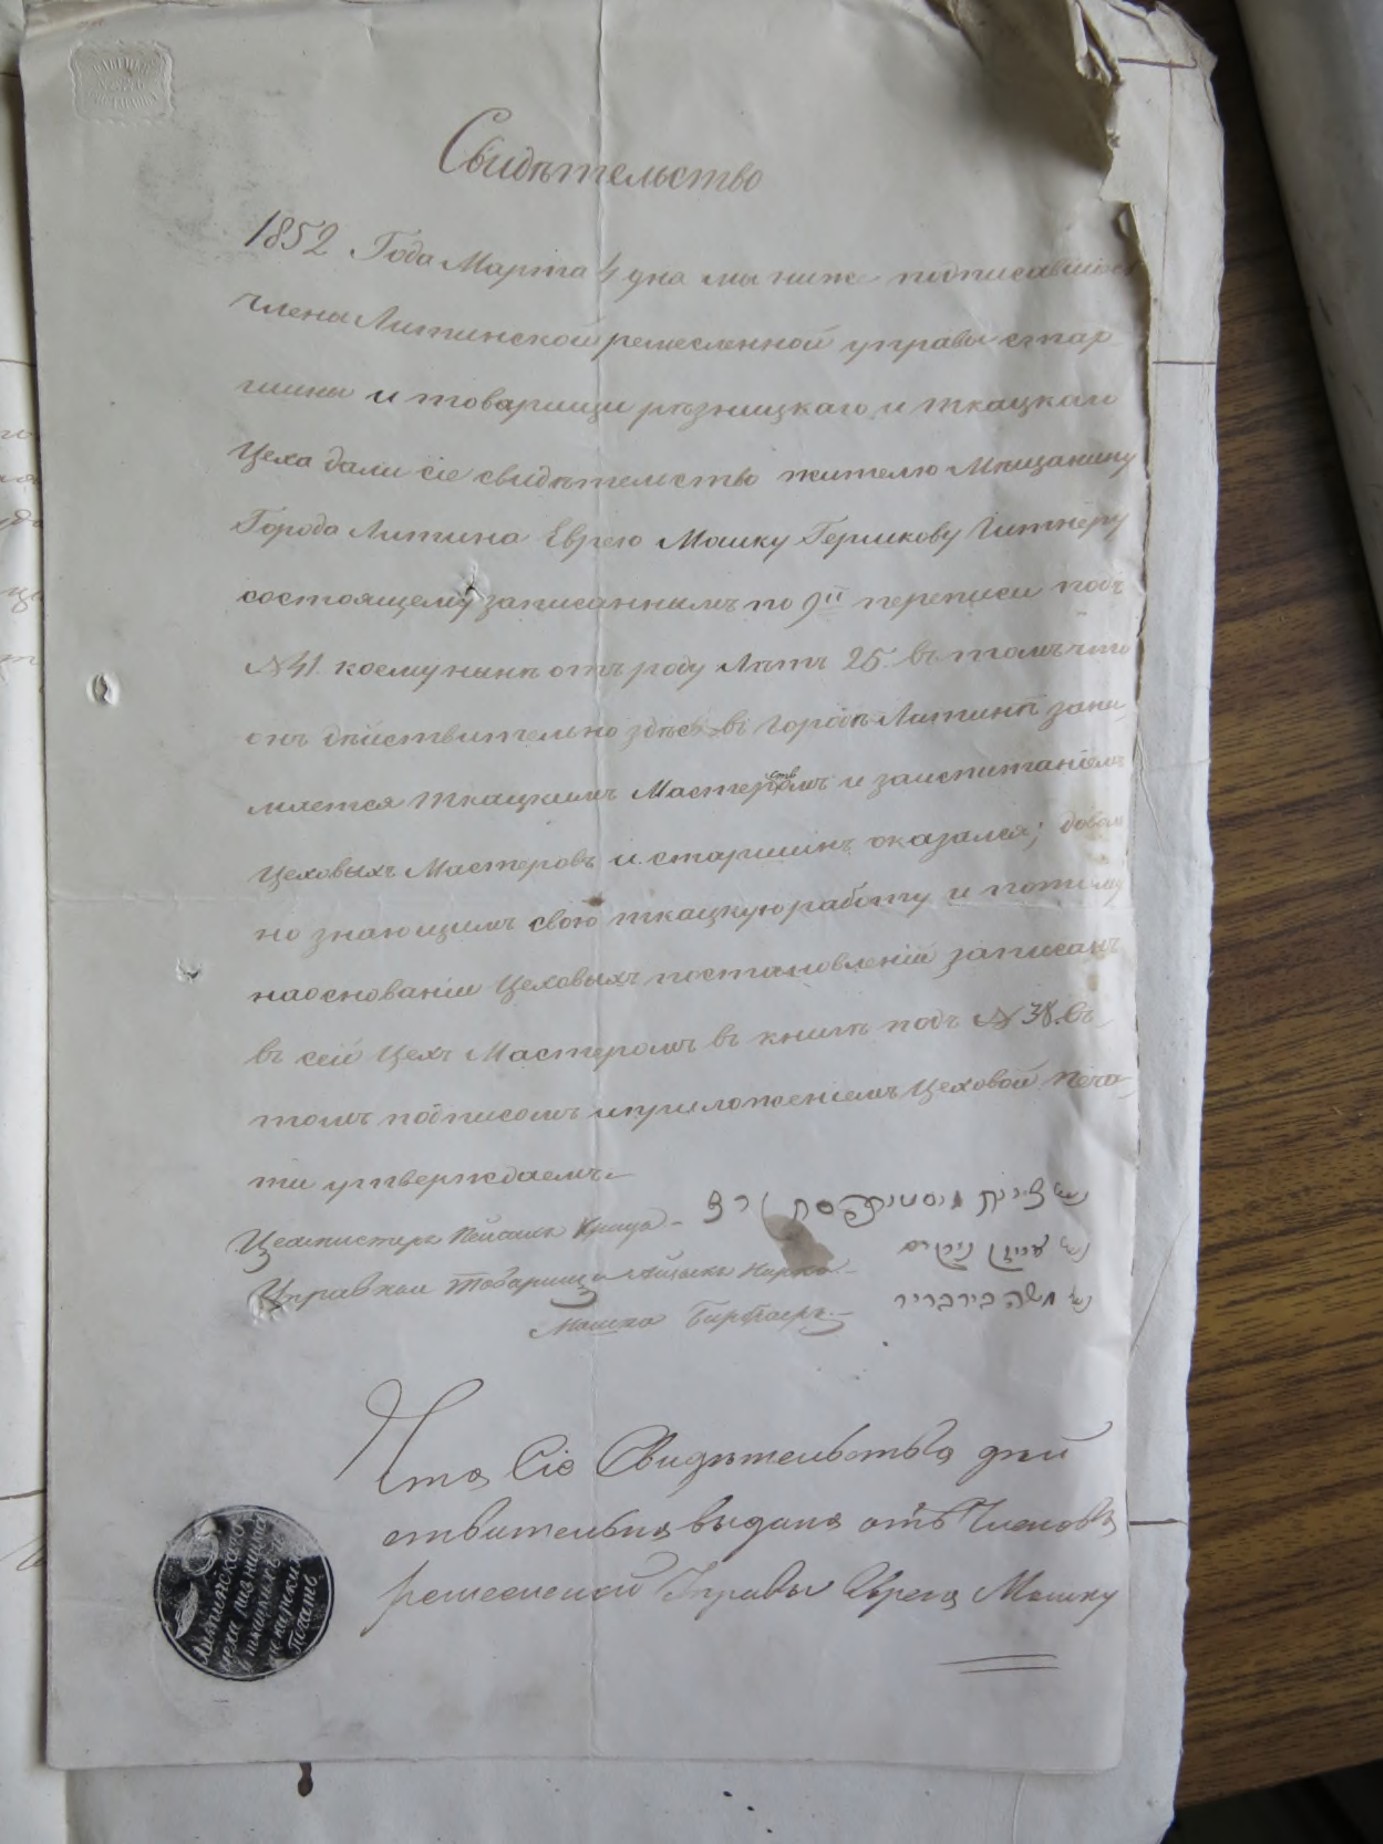 Свидѣтельство
1852 Года Марта 4 дня мы ниже подписавшіеся
члены Литинской ремесленной управы стар
шины и товарищи рѣзницкаго и ткацкаго
Цеха дали сіе свидѣтельство жителю Мѣщанину
Города Литина Еврею Мошку Гершкову Гитнеру
состоящему записаннымъ по 9й переписи подъ
№ 41. коему нынѣ отъ роду Лѣтъ 25. въ томъ что
онъ дѣйствительно здѣсь въ городѣ Литинѣ зани
мается ткацкимъ Мастерствомъ и заиспитаніемъ
Цеховыхъ Мастеровъ и старшинъ оказался; доволь
но знающимъ свою ткацкую работу и потому
наоснованіи Цеховыхъ постановленій записанъ
въ сей Цехъ Мастеромъ въ книгѣ подъ № 38. въ
томъ подписомъ иприложеніемъ Цеховой печа
ти утверждаемъ.
Цехмистеръ
Управной товарищъ
Мошко Бирбраеръ
משה בירבריר
Что Сіе Свидѣтельство дѣй
ствительно выдано отъ Членовъ
ремесленой Управы Еврею Мошку
Литинскаго
цеха
печать